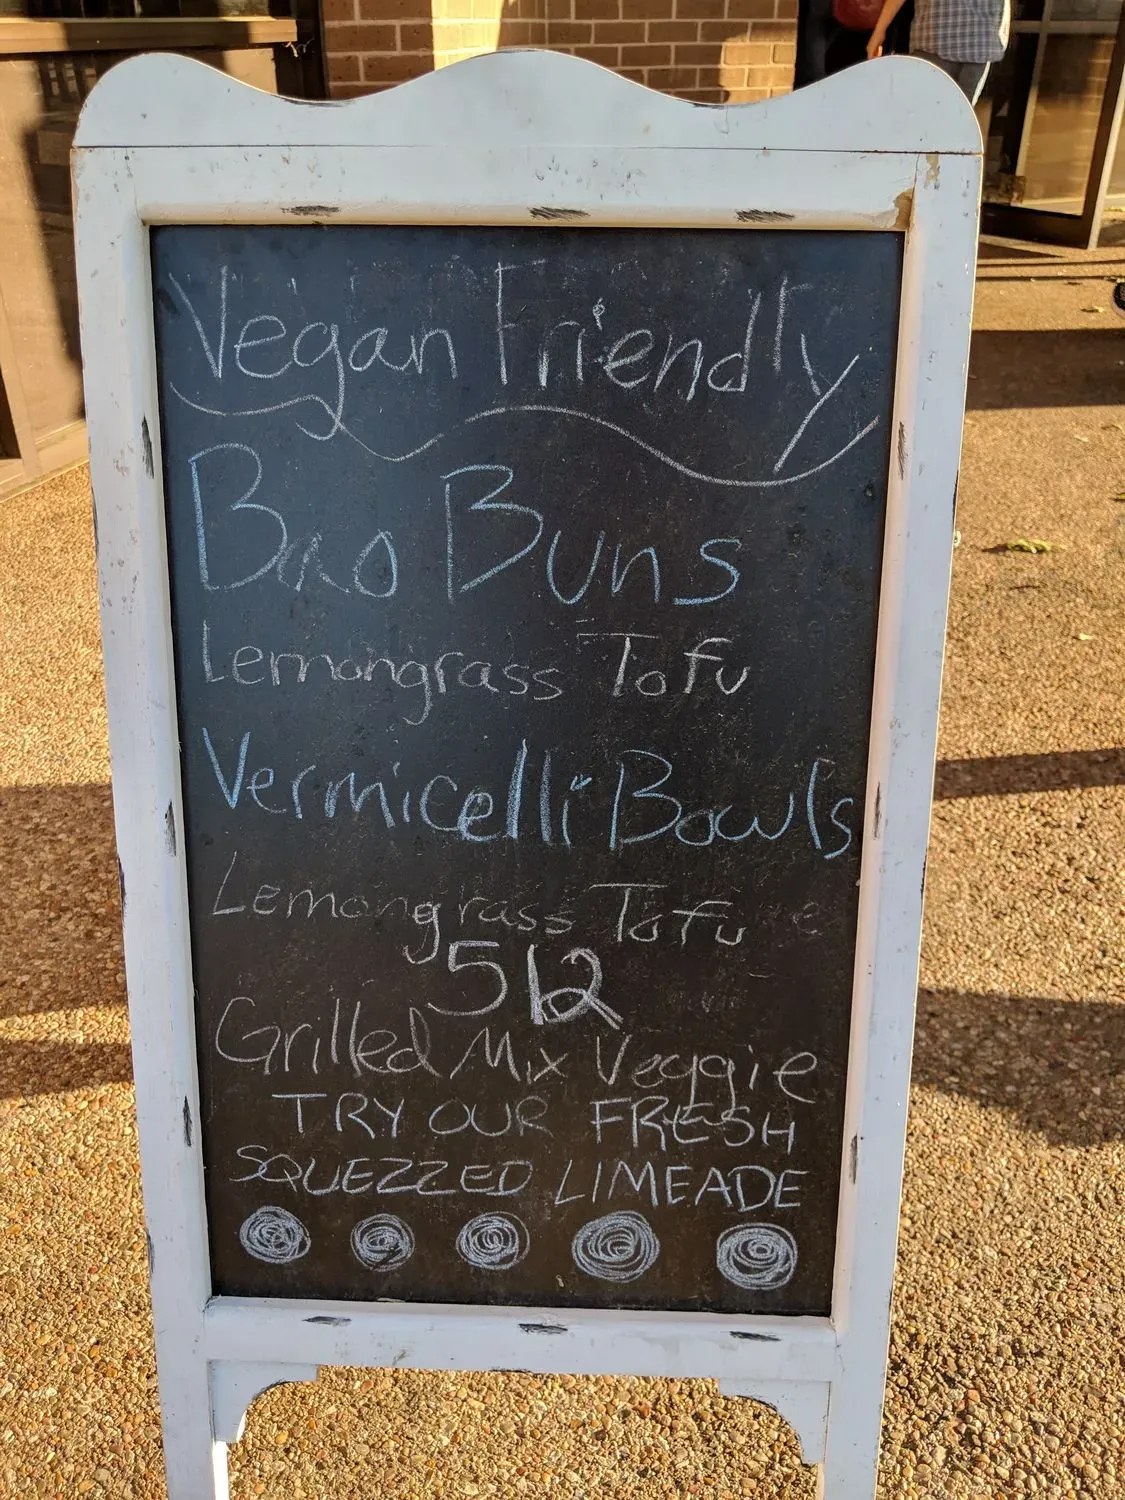 Vegan Friendly
Bao Buns
Lemongrass Tofu
Vermicelli Bowls
Lemongrass Tofu
512
Grilled Mix Veggie
TRY OUR FRESH
SQUEZZED LIMEADE